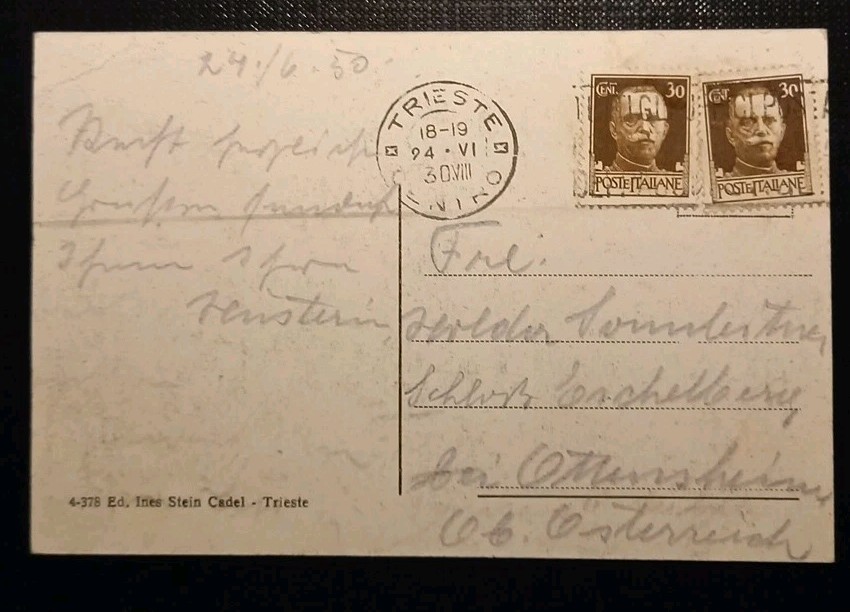 24./6.30
Recht herzliche
Grüßen sendet
Ihnen Ihre
TRIESTE
18-19
24 · VI
30 VIII
CENTRO
CENT. 30
POSTE ITALIANE
CENT. 30
POSTE ITALIANE
Frl.
Sonnleitner
Schloß Eschelberg
bei Ottensheim
Ob. Österreich
4-378 Ed. Ines Stein Cadel - Trieste